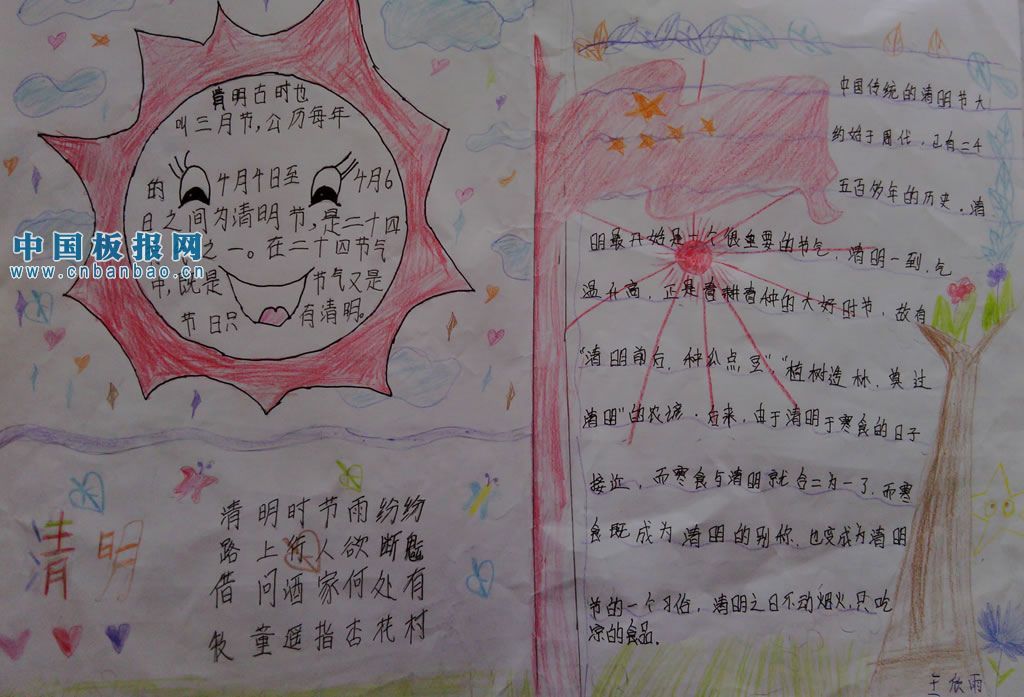 清明古时也
叫三月节,公历每年
的 4月4日至 4月6
日之间为清明节,是二十四
之一。在二十四节气
中,既是 节气又是
节日只 有清明。
中国板报网
www.cnbanbao.cn
清明
清明时节雨纷纷
路上行人欲断魂
借问酒家何处有
牧童遥指杏花村
中国传统的清明节大
约始于周代,已有二千
五百多年的历史。清
明最开始是一个很重要的节气,清明一到,气
温升高,正是春耕春种的大好时节,故有
“清明前后,种瓜点豆”,“植树造林,莫过
清明”的农谚。后来,由于清明于寒食的日子
接近,而寒食与清明就合二为一了,而寒
食既成为清明的别你,也变成为清明
节的一个习俗,清明之日不动烟火,只吃
凉的食品。
王欣雨